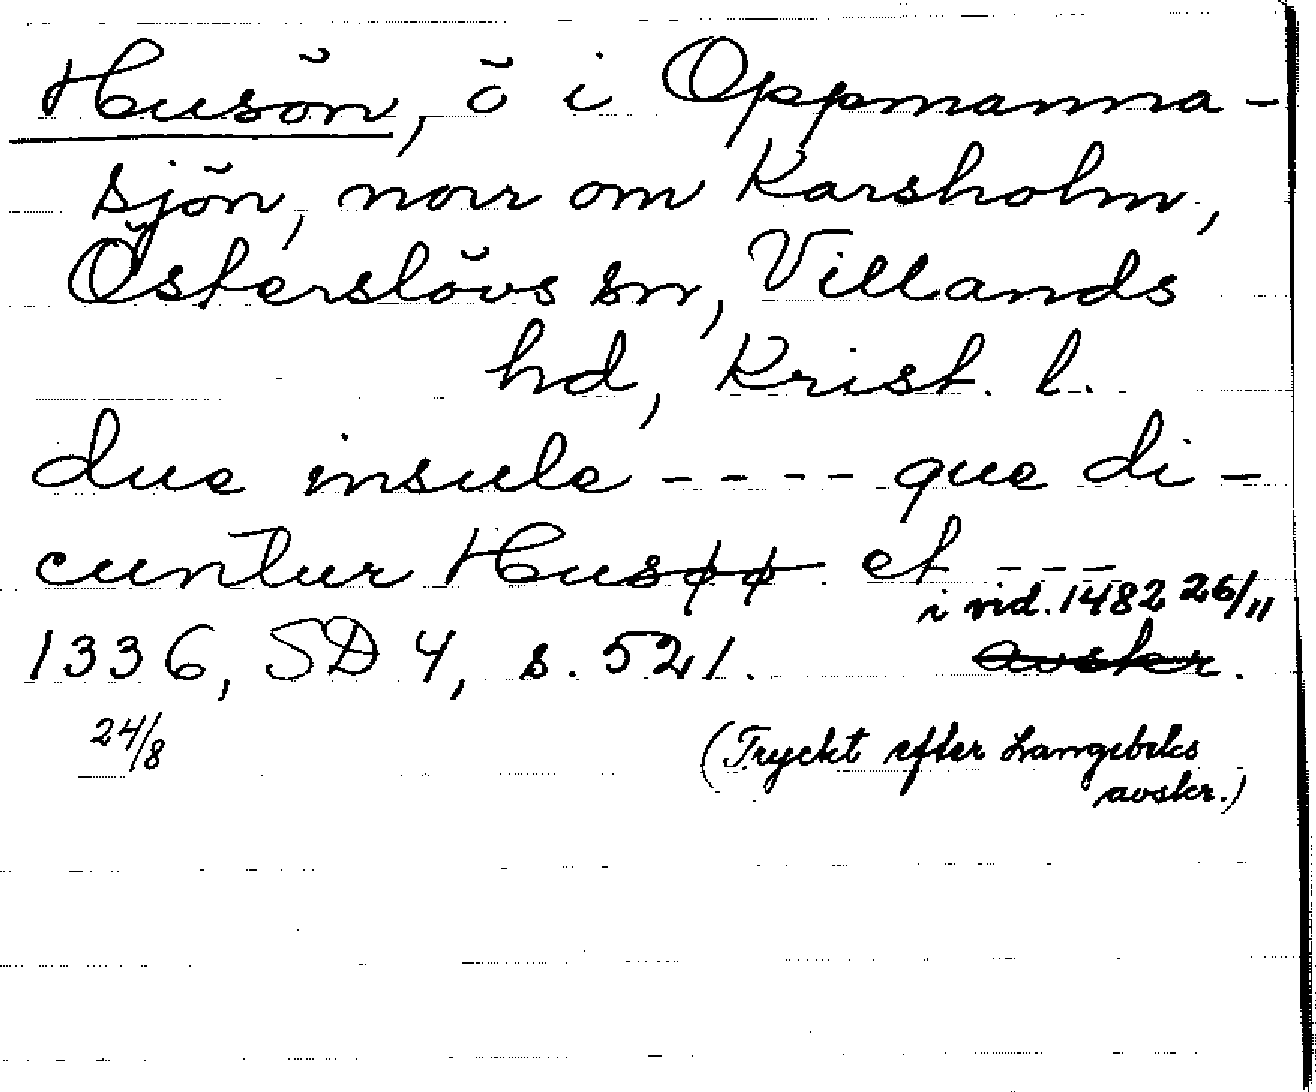 Husön, ö i Oppmanna-
sjön, norr om Karsholm,
Österslövs sn, Villands
hd, Krist. l.
due insule ---- que di-
cuntur Husøø et ----
i vid. 1482 26/11
1336, SD 4, s. 521. avskr.
24/8
(Tryckt efter Langebeks
avskr.)